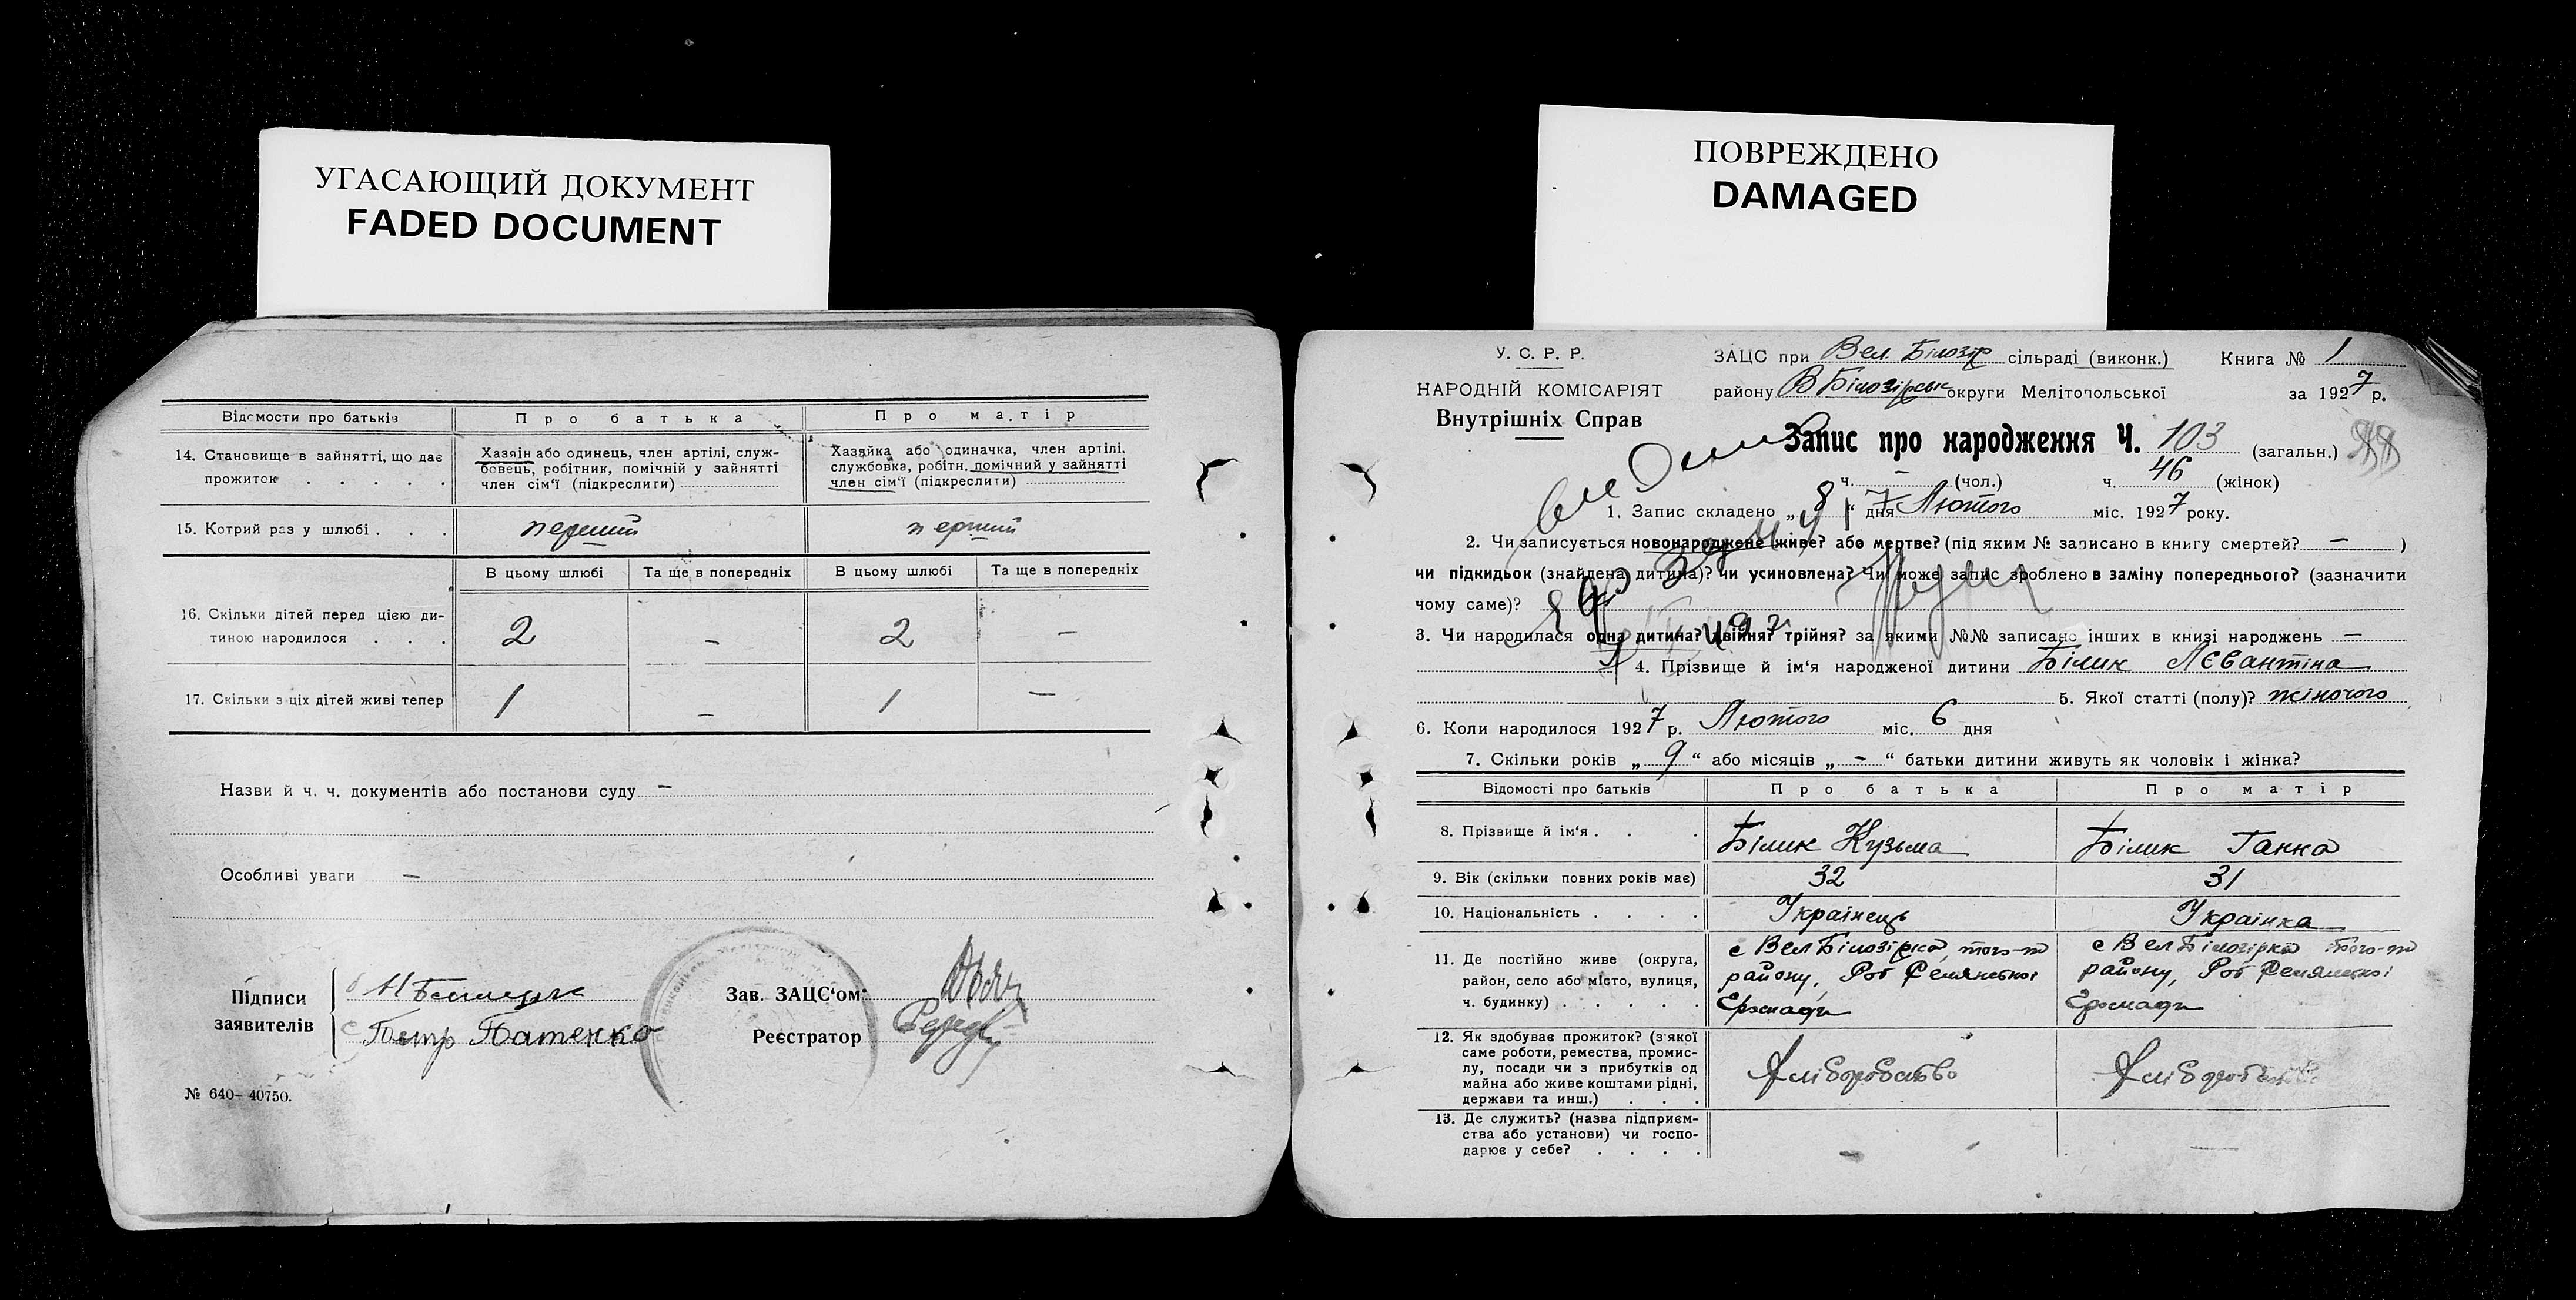 УГАСАЮЩИЙ ДОКУМЕНТ
FADED DOCUMENT
Відомости про батьків
Про батька
Про матір
14. Становище в зайнятті, що дає прожиток
Хазяїн або одинець, член артілі, служ-
бовець, робітник, помічній у зайнятті
член сім'ї (підкреслити)
Хазяйка або одиначка, член артілі,
службовка, робітн. помічний у зайнятті
член сім'ї (підкреслити)
15. Котрий раз у шлюбі
перший
перший
В цьому шлюбі
Та ще в попередніх
В цьому шлюбі
Та ще в попередніх
16. Скільки дітей перед цією ди-
тиною народилося
2 – 2 –
17. Скільки з ціх дітей живі тепер
1 – 1 –
Назви й ч. ч. документів або постанови суду –
Особливі уваги –
Підписи
заявителів
Петр Патенко
Зав. ЗАЦС'ом
Реєстратор
№ 640– 40750.
ПОВРЕЖДЕНО
DAMAGED
У. С. Р. Р.
НАРОДНІЙ КОМІСАРІЯТ
Внутрішніх Справ
ЗАЦС при Вел. Білозір сільраді (виконк.) Книга № 1
району В Білозірськ округи Мелітопольської за 1927 р.
Запис про народження Ч. 103 (загальн.)
ч. – (чол.) ч. 46 (жінок)
1. Запис складено „ 8 “ дня Лютого міс. 1927 року.
2. Чи записується новонароджене живе? або мертве? (під яким № записано в книгу смертей? – )
чи підкидьок (знайдена дитина)? чи усиновлена? Чи може запис зроблено в заміну попереднього? (зазначити
чому саме)?
3. Чи народилася одна дитина? двійня? трійня? за якими №№ записано інших в книзі народжень –
4. Прізвище й ім'я народженої дитини Білик Лєвантіна
5. Якої статті (полу)? жіночого
6. Коли народилося 1927 р. Лютого міс. 6 дня
7. Скільки років „ 9 “ або місяців „ – “ батьки дитини живуть як чоловік і жінка?
Відомості про батьків
Про батька
Про матір
8. Прізвище й ім'я
Білик Кузьма
Білик Ганна
9. Вік (скільки повних років має)
32
31
10. Національність
Українець
Українка
11. Де постійно живе (округа,
район, село або місто, вулиця,
ч. будинку)
с Вел Білозірка, того-ж
району,
с Вел Білозірка того-ж
району,
12. Як здобуває прожиток? (з якої
саме роботи, ремества, промис-
лу, посади чи з прибутків од
майна або живе коштами рідні,
держави та инш.)
Хліборобство
13. Де служить? (назва підприєм-
ства або установи) чи госпо-
дарює у себе?
– –